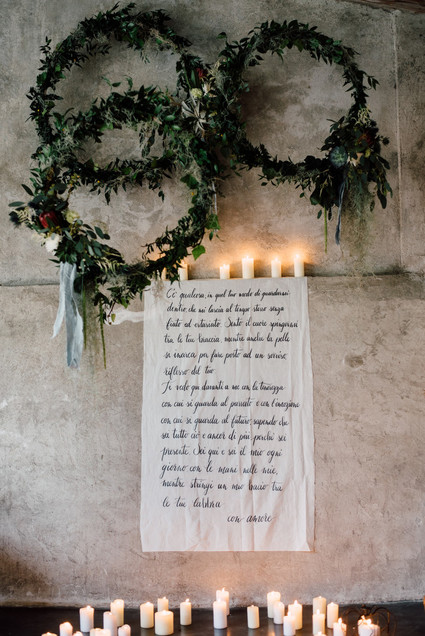 C'è qualcosa, in quel tuo modo di guardarmi
dentro che mi lascia al tempo stesso senza
fiato ed esterrefatto. Sento il cuore spingermi
tra le tue braccia, mentre anche la pelle
si inarca per fare posto ad un sorriso,
riflesso del tuo.
Ti vedo qui davanti a me con la tenerezza
con cui si guarda al passato e con l'emozione
con cui si guarda al futuro, sapendo che
sei tutto ciò e ancor di più perché sei
presente. Sei qui e sei il mio ogni
giorno con le mani nelle mie,
mentre stringo un mio bacio tra
le tue labbra
con amore